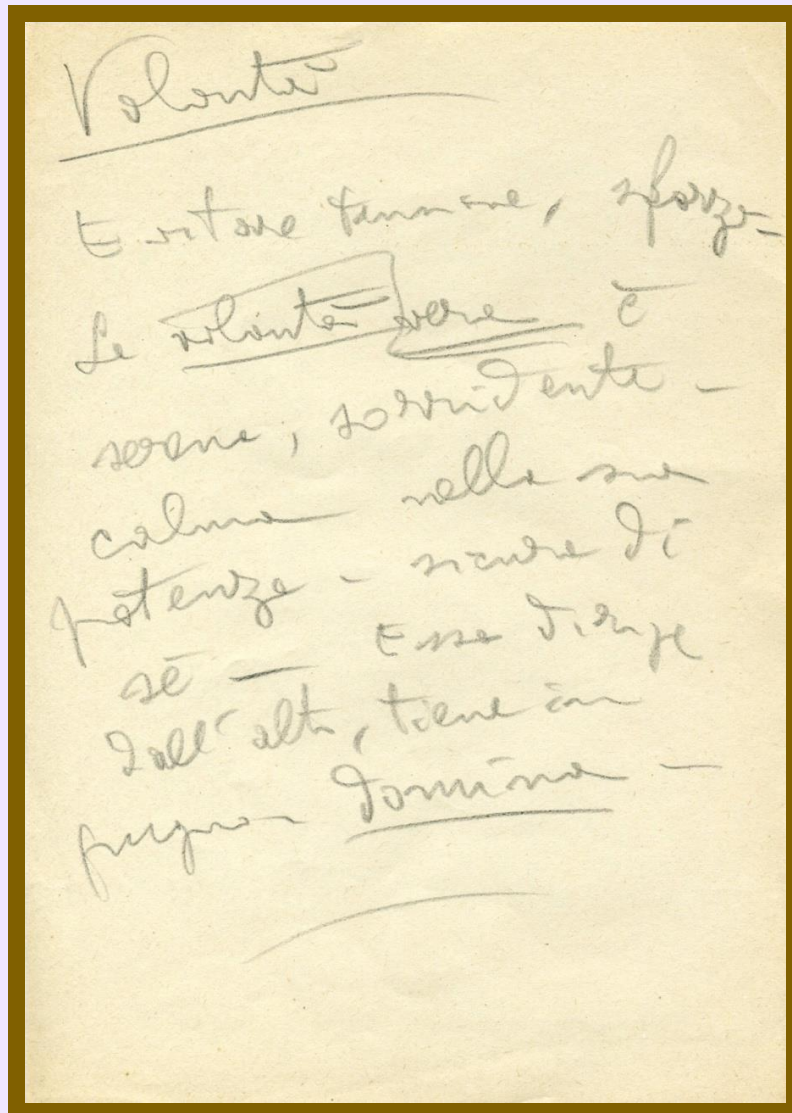 Volontà
Evitare tensione, sforzo -
La volontà vera è
serena, sorridente -
calma nella sua
potenza - sicura di
sé — Essa dirige
dall'alto, tiene in
pugno domina -